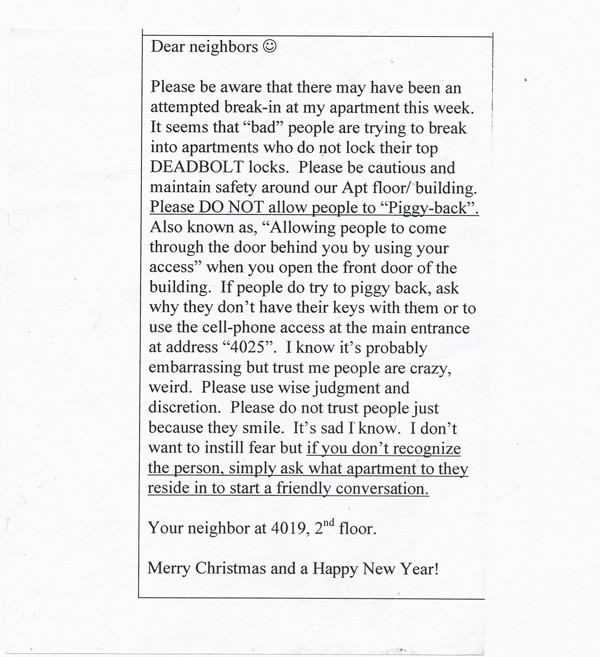 Dear neighbors ☺
Please be aware that there may have been an
attempted break-in at my apartment this week.
It seems that “bad” people are trying to break
into apartments who do not lock their top
DEADBOLT locks.  Please be cautious and
maintain safety around our Apt floor/ building.
Please DO NOT allow people to “Piggy-back”.
Also known as, “Allowing people to come
through the door behind you by using your
access” when you open the front door of the
building.  If people do try to piggy back, ask
why they don’t have their keys with them or to
use the cell-phone access at the main entrance
at address “4025”.  I know it’s probably
embarrassing but trust me people are crazy,
weird.  Please use wise judgment and
discretion.  Please do not trust people just
because they smile.  It’s sad I know.  I don’t
want to instill fear but if you don’t recognize
the person, simply ask what apartment to they
reside in to start a friendly conversation.
Your neighbor at 4019, 2nd floor.
Merry Christmas and a Happy New Year!